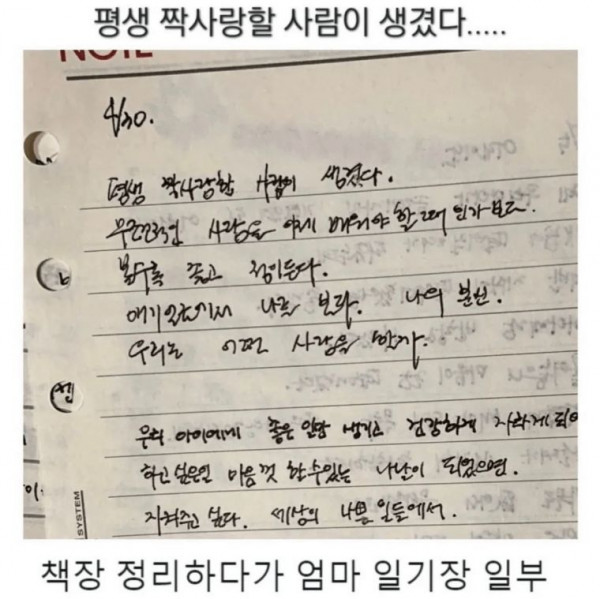 평생 짝사랑할 사람이 생겼다.....
NOTE
4/30.
평생 짝사랑할 사람이 생겼다.
무조건적인 사랑을 이제 배워야 할 때 인가보다.
볼수록 좋고 정이든다.
애기 얼굴에서 나를 보다. 나의 분신.
우리는 어떤 사랑을 할까.
우리 아이에게 좋은 일만 생기고 건강하게 자라게 되어
하고싶은일 마음껏 할수있는 나날이 되었으면.
지켜주고 싶다. 세상의 나쁜 일들에서.
SYSTEM
책장 정리하다가 엄마 일기장 일부